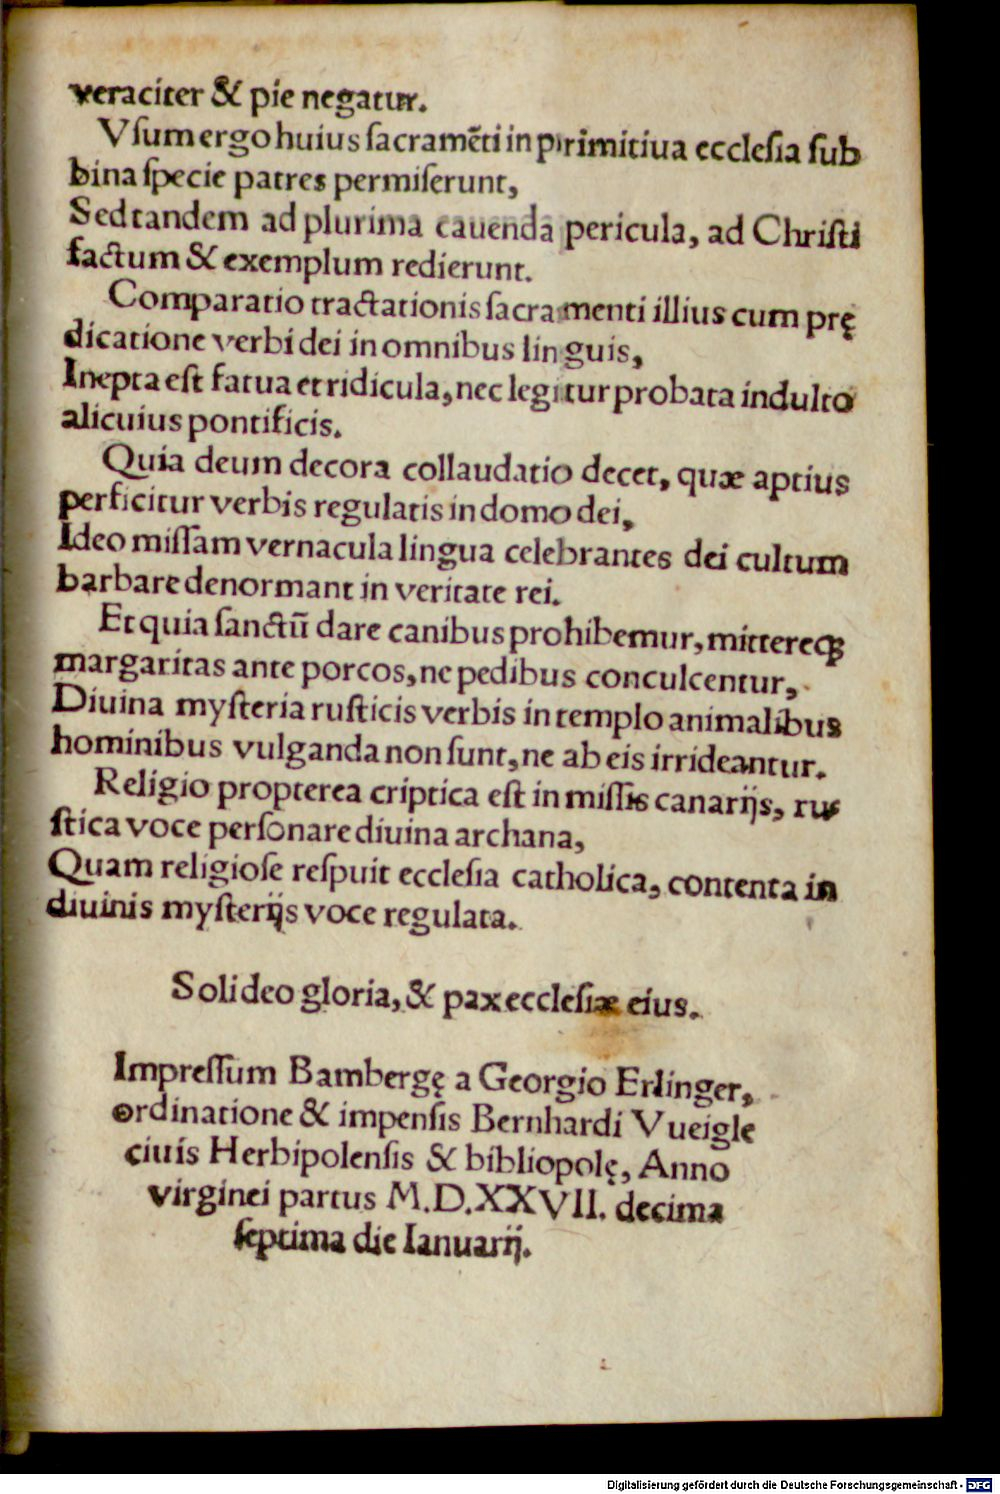 veraciter & pie negatur.
Vſum ergo huius ſacramēti in primitiua eccleſia ſub
bina ſpecie patres permiſerunt,
Sed tandem ad plurima cauenda pericula, ad Chriſti
factum & exemplum redierunt.
Comparatio tractationis ſacramenti illius cum prę
dicatione verbi dei in omnibus linguis,
Inepta eſt fatua et ridicula, nec legitur probata indulto
alicuius pontificis.
Quia deum decora collaudatio decet, quæ aptius
perficitur verbis regulatis in domo dei,
Ideo miſſam vernacula lingua celebrantes dei cultum
barbare denormant in veritate rei.
Et quia ſanctū dare canibus prohibemur, mittereqꝫ
margaritas ante porcos, ne pedibus conculcentur,
Diuina myſteria ruſticis verbis in templo animalibus
hominibus vulganda non ſunt, ne ab eis irrideantur.
Religio propterea criptica eſt in miſſis canarijs, ru
ſtica voce perſonare diuina archana,
Quam religioſe reſpuit eccleſia catholica, contenta in
diuinis myſterijs voce regulata.
Soli deo gloria, & pax eccleſiæ eius.
Impreſſum Bambergę a Georgio Erlinger,
ordinatione & impenſis Bernhardi Vueigle
ciuis Herbipolenſis & bibliopolę, Anno
virginei partus M.D.XXVII. decima
ſeptima die Ianuarij.
Digitalisierung gefördert durch die Deutsche Forschungsgemeinschaft - DFG